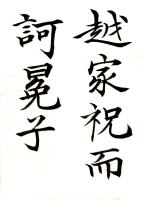 越家祝而
訶冕子